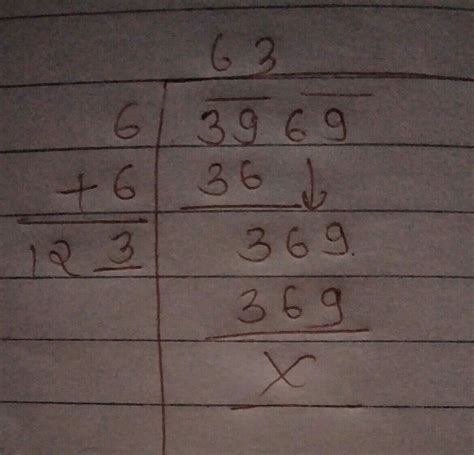 63
6 3969
+6 36 ↓
123 369.
369
X